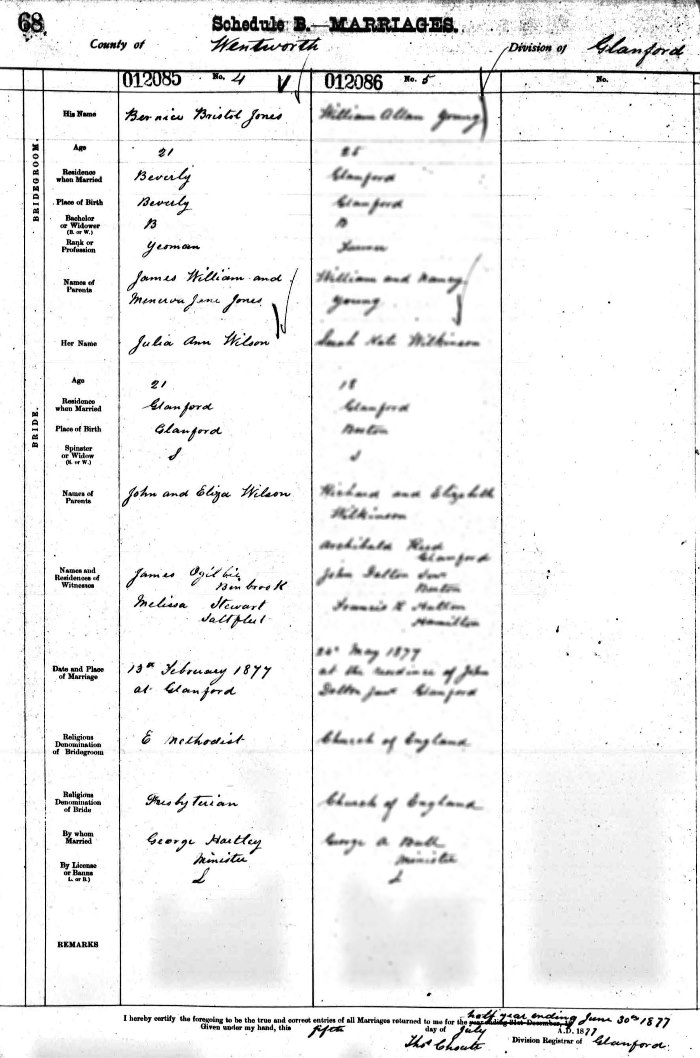 68
Schedule B.—MARRIAGES.
County of Wentworth Division of Glanford
012085 No. 4 012086 No. 5 No.
BRIDEGROOM.
His Name Bernice Bristol Jones William Allan Young
Age 21 25
Residence when Married Beverly Glanford
Place of Birth Beverly Glanford
Bachelor or Widower (B. or W.) B B
Rank or Profession Yeoman Farmer
Names of Parents James William and William and Nancy
Menerva Jene Jones Young
BRIDE.
Her Name Julia Ann Wilson Sarah Kate Wilkinson
Age 21 18
Residence when Married Glanford Glanford
Place of Birth Glanford
Spinster or Widow (S. or W.) S S
Names of Parents John and Eliza Wilson Richard and Elizabeth
Wilkinson
Archibald
Glanford
Names and Residences of Witnesses James Ogilbie John
Binbrook
Melissa Stewart Francis
Saltfleet Hamilton
May 1877
Date and Place of Marriage 13th February 1877 at the residence of John
at Glanford Glanford
Religious Denomination of Bridegroom E Methodist Church of England
Religious Denomination of Bride Presbyterian Church of England
By whom Married George Hartley George A Bull
Minister Minister
By License or Banns (L. or B.) L L
REMARKS
I hereby certify the foregoing to be the true and correct entries of all Marriages returned to me for the half year ending June 30th 1877
Given under my hand, this fifth day of July A.D. 1877
Thos Choate Division Registrar of Glanford.